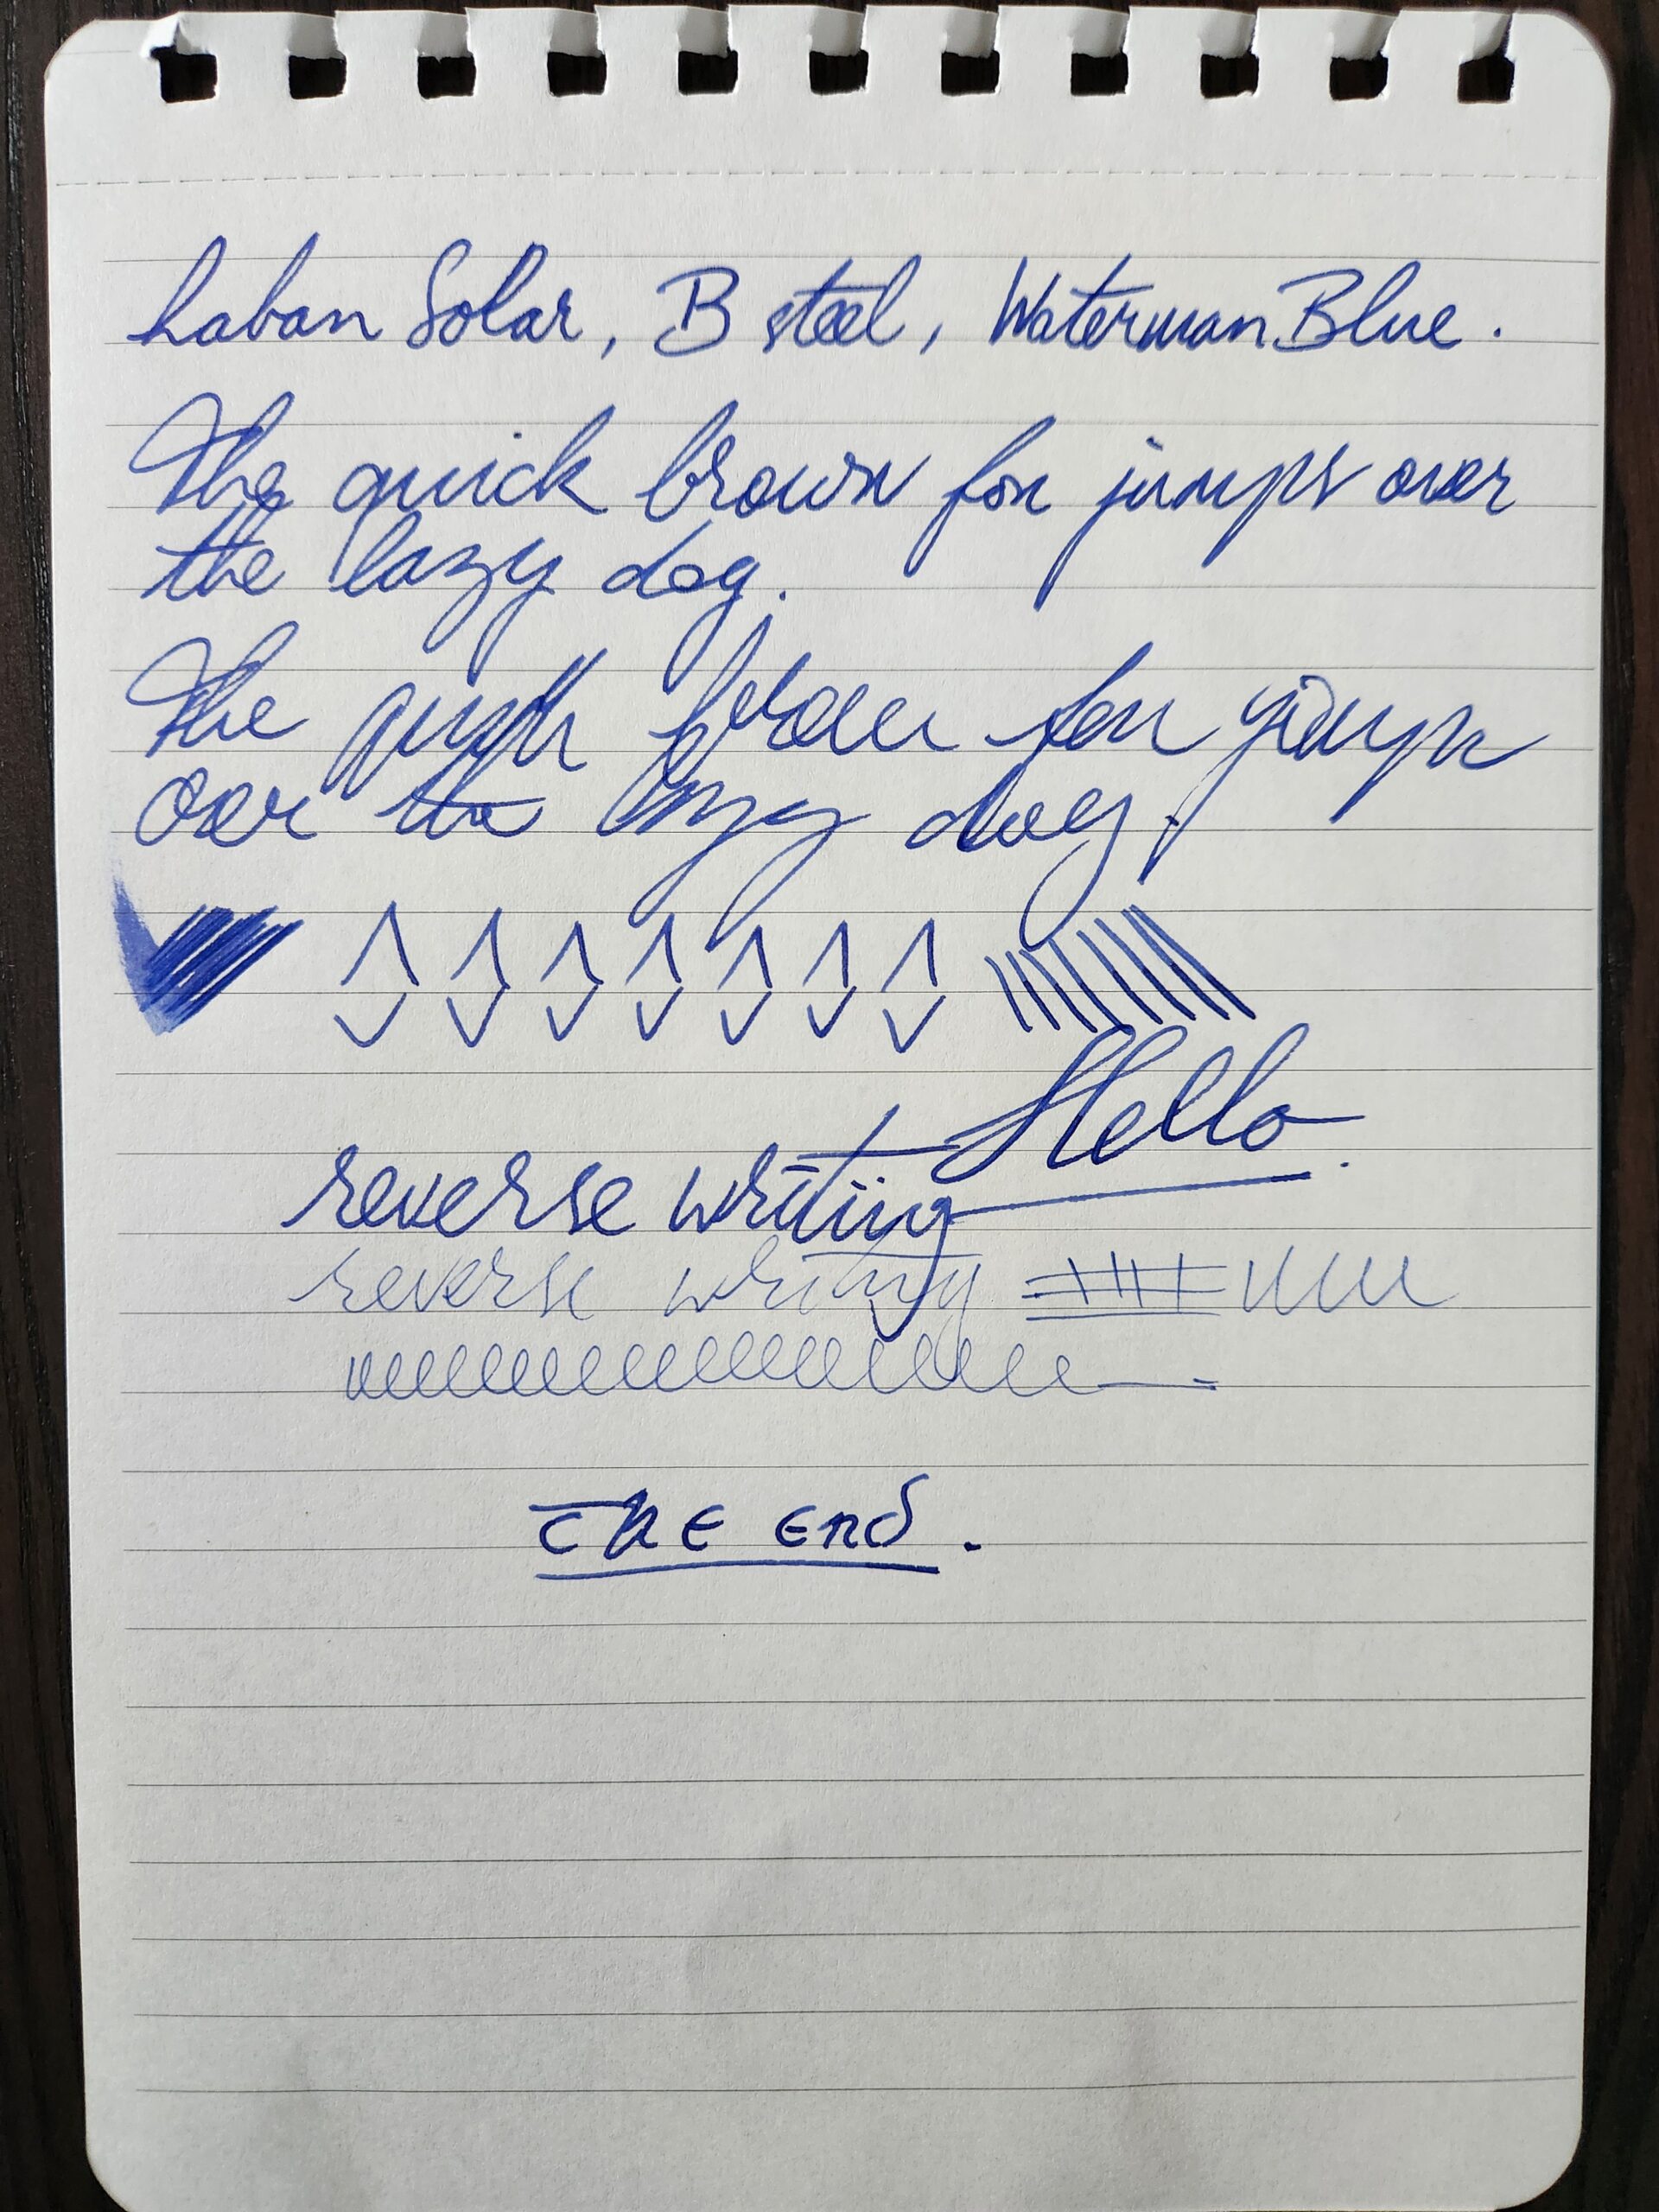 Laban Solar, B steel, Waterman Blue.
The quick brown fox jumps over
the lazy dog.
The quick brown fox jumps
over the lazy dog.
Hello.
reverse writing
reverse writing
The End.